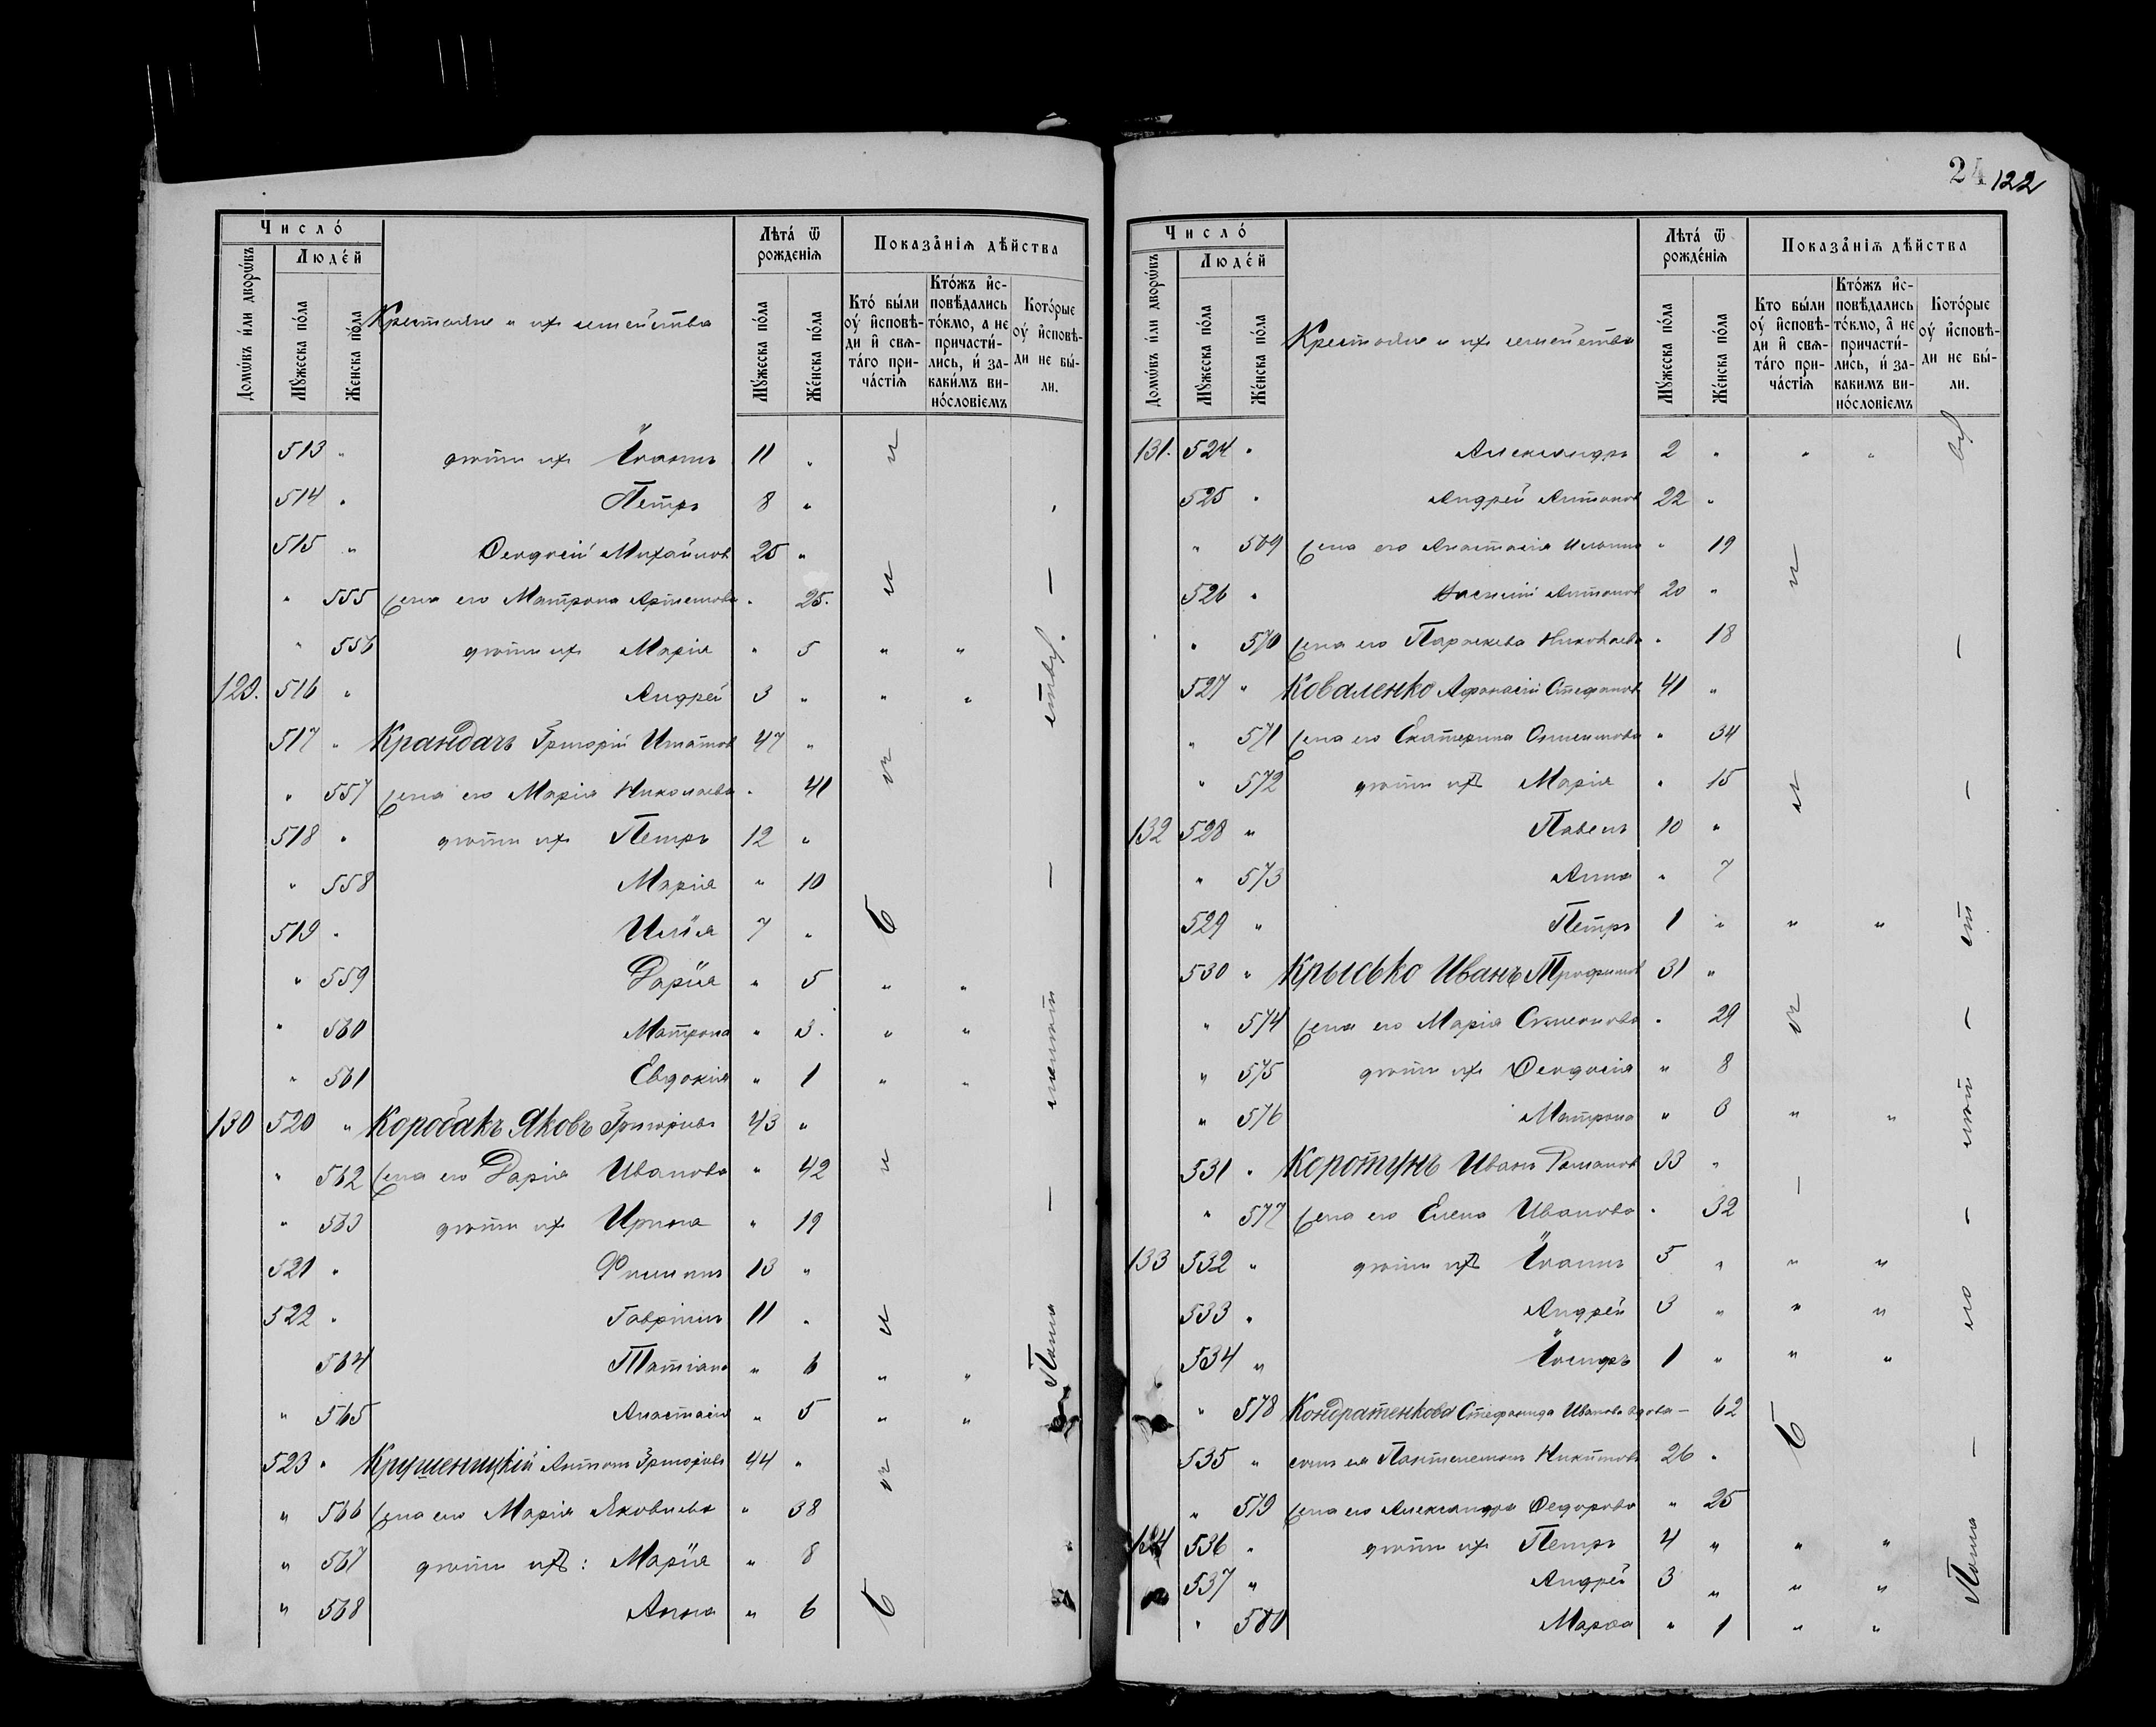 24 122
Число́
Людéй
Домѡ́въ и́ли дворѡ́въ
Мꙋ́жеска по́ла
Же́нска по́ла
Крестьяне и ихъ семейства
Лѣта́ ѿ рожде́нїѧ
Мꙋ́жеска по́ла
Же́нска по́ла
Показа̑нїѧ дѣ́йства
Кто́ бы́ли оу҆ и҆сповѣ́ди и҆ свѧта́го прича́стїѧ
Кто́жъ и҆сповѣ́дались то́кмо, а не причасти́лись, и҆ за каки́мъ вино́словїемъ
Кото́рые оу҆ и҆сповѣ́ди не бы́ли.
513 " дѣти ихъ Іоаннъ 11 "
514 " Петръ 8 "
515 " Ѳеодосій Михайловъ 25 "
" 555 жена его Матрона Артемова " 25.
" 556 дѣти ихъ Марія " 5 " "
129. 516 " Андрей 3 " " "
517 " Крандачъ Григорій Игнатовъ 47 "
" 557 жена его Марія Николаева " 41
518 " дѣти ихъ Петръ 12 "
" 558 Марія " 10
519 " Илія 7 "
" 559 Дарія " 5 " "
" 560 Матрона " 3. " "
" 561 Евдокія " 1 " "
130 520 " Коробакъ Яковъ Григорьевъ 43 "
" 562 жена его Дарія Иванова " 42
" 563 дѣти ихъ Ирина " 19
521 " Филиппъ 13 "
522 " Гавріилъ 11 "
564 Татіана " 6 " "
" 565 Анастасія " 5 " "
523 " Крушеницкій Антонъ Григорьевъ 44 "
" 566 жена его Марія Яковлева " 38
" 567 дѣти ихъ: Марія " 8
" 568 Анна " 6
Число́
Людéй
Домѡ́въ и́ли дворѡ́въ
Мꙋ́жеска по́ла
Же́нска по́ла
Крестьяне и ихъ семейства
Лѣта́ ѿ рожде́нїѧ
Мꙋ́жеска по́ла
Же́нска по́ла
Показа̑нїѧ дѣ́йства
Кто бы́ли оу҆ и҆сповѣ́ди и҆ свѧта́го прича́стїѧ
Кто́жъ и҆сповѣ́дались то́кмо, а҆ не причасти́лись, и҆ за каки́мъ вино́словїемъ
Кото́рые оу҆ и҆сповѣ́ди не бы́ли.
131. 524 " Александръ 2 " " "
525 " Андрей Антоновъ 22 "
" 569 жена его Анастасія Иванова " 19
526 " Василій Антоновъ 20 "
" 570 жена его Параскева Николаева " 18
527 " Коваленко Афанасій Стефановъ 41 "
" 571 жена его Екатерина " 34
" 572 дѣти ихъ Марія " 15
132 528 " Павелъ 10 "
" 573 Анна " 7
529 " Петръ 1 " " "
530 " Крысько Иванъ Трофимовъ 31 "
" 574 жена его Марія Симеонова " 29
" 575 дѣти ихъ Ѳеодосія " 8
" 576 Матрона " 3 " "
531 " Коротунъ Иванъ Романовъ 33 "
" 577 жена его Елена Иванова " 32
133 532 " дѣти ихъ Іоаннъ 5 " " "
533 " Андрей 3 " " "
534 " Іосифъ 1 " " "
" 578 Кондратенкова Стефанида Иванова вдова — 62
535 " сынъ ея Пантелеимонъ Никитовъ 26 "
" 579 жена его Александра Ѳедорова " 25
134 536 " дѣти ихъ Петръ 4 " " "
537 " Андрей 3 " " "
" 580 Марѳа " 1 " "